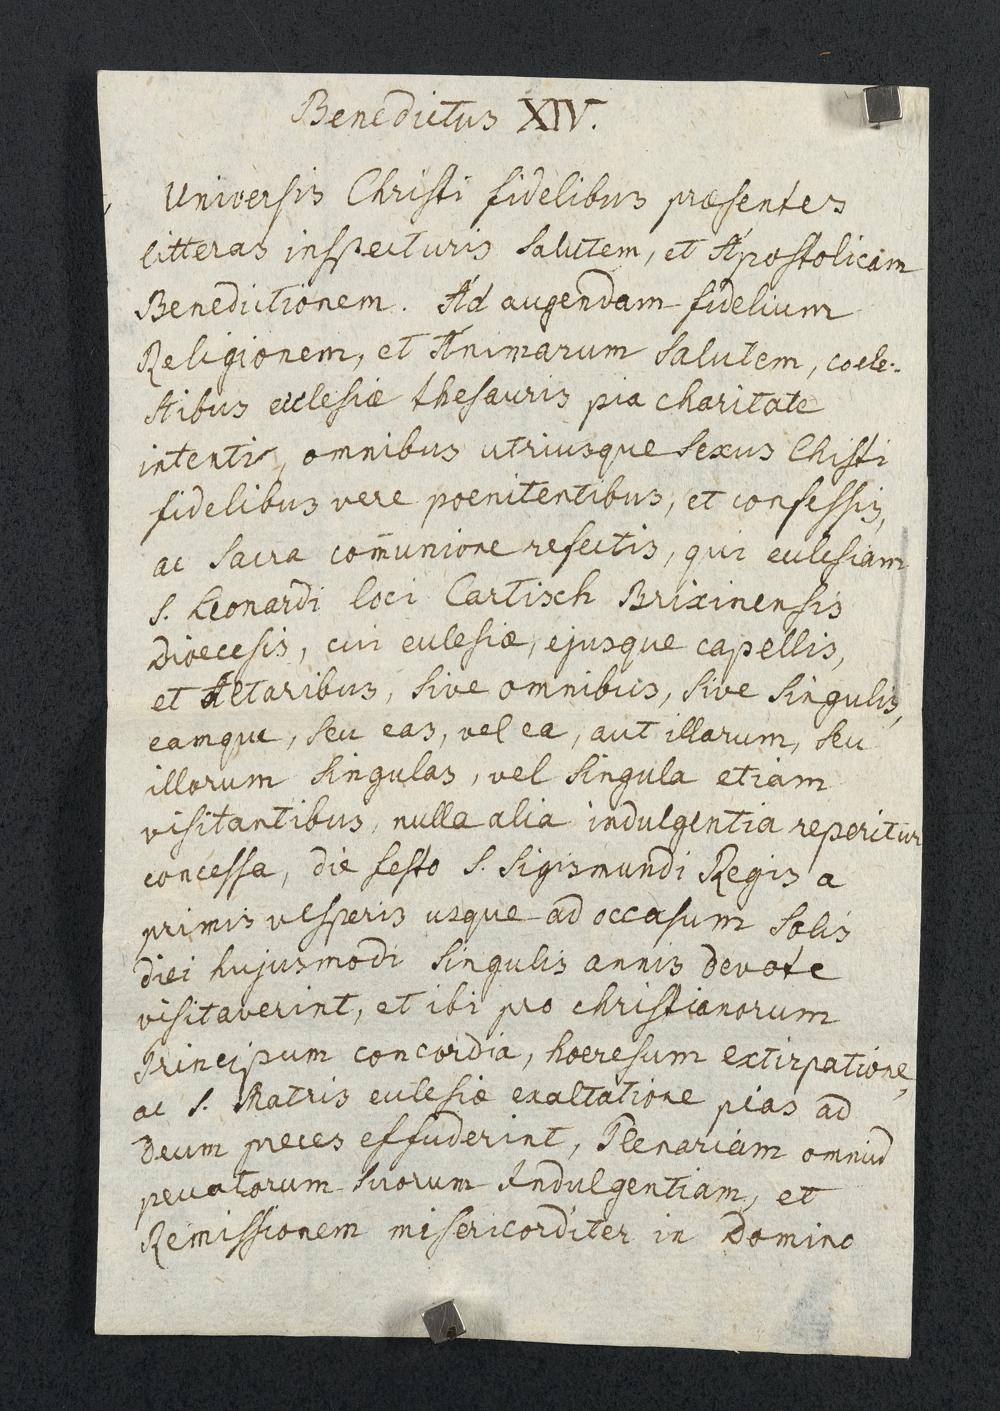 Benedictus XIV.
Universis Christi fidelibus præsentes
litteras inspecturis salutem, et Apostolicam
Benedictionem. Ad augendam fidelium
Religionem, et Animarum salutem, coele-
stibus ecclesiæ thesauris pia charitate
intenti, omnibus utriusque sexus Chisti
fidelibus vere poenitentibus, et confessis,
ac sacra com̅unione refectis, qui ecclesiam
S. Leonardi loci Cartisch Brixinensis
Dioecesis, cui ecclesiæ, ejusque capellis,
et Altaribus, sive omnibus, sive singulis,
eamque, seu eas, vel ea, aut illarum, seu
illorum singulas, vel singula etiam
visitantibus, nulla alia indulgentia reperitur
concessa, die festo S. Sigismundi Regis a
primis vesperis usque ad occasum solis
diei hujusmodi singulis annis devote
visitaverint, et ibi pro christianorum
Principum concordia, hoeresum extirpatione,
ac S. Matris ecclesiæ exaltatione pias ad
Deum preces effuderint, Plenariam omniu̅
peccatorum suorum Indulgentiam, et
Remissionem misericorditer in Domino